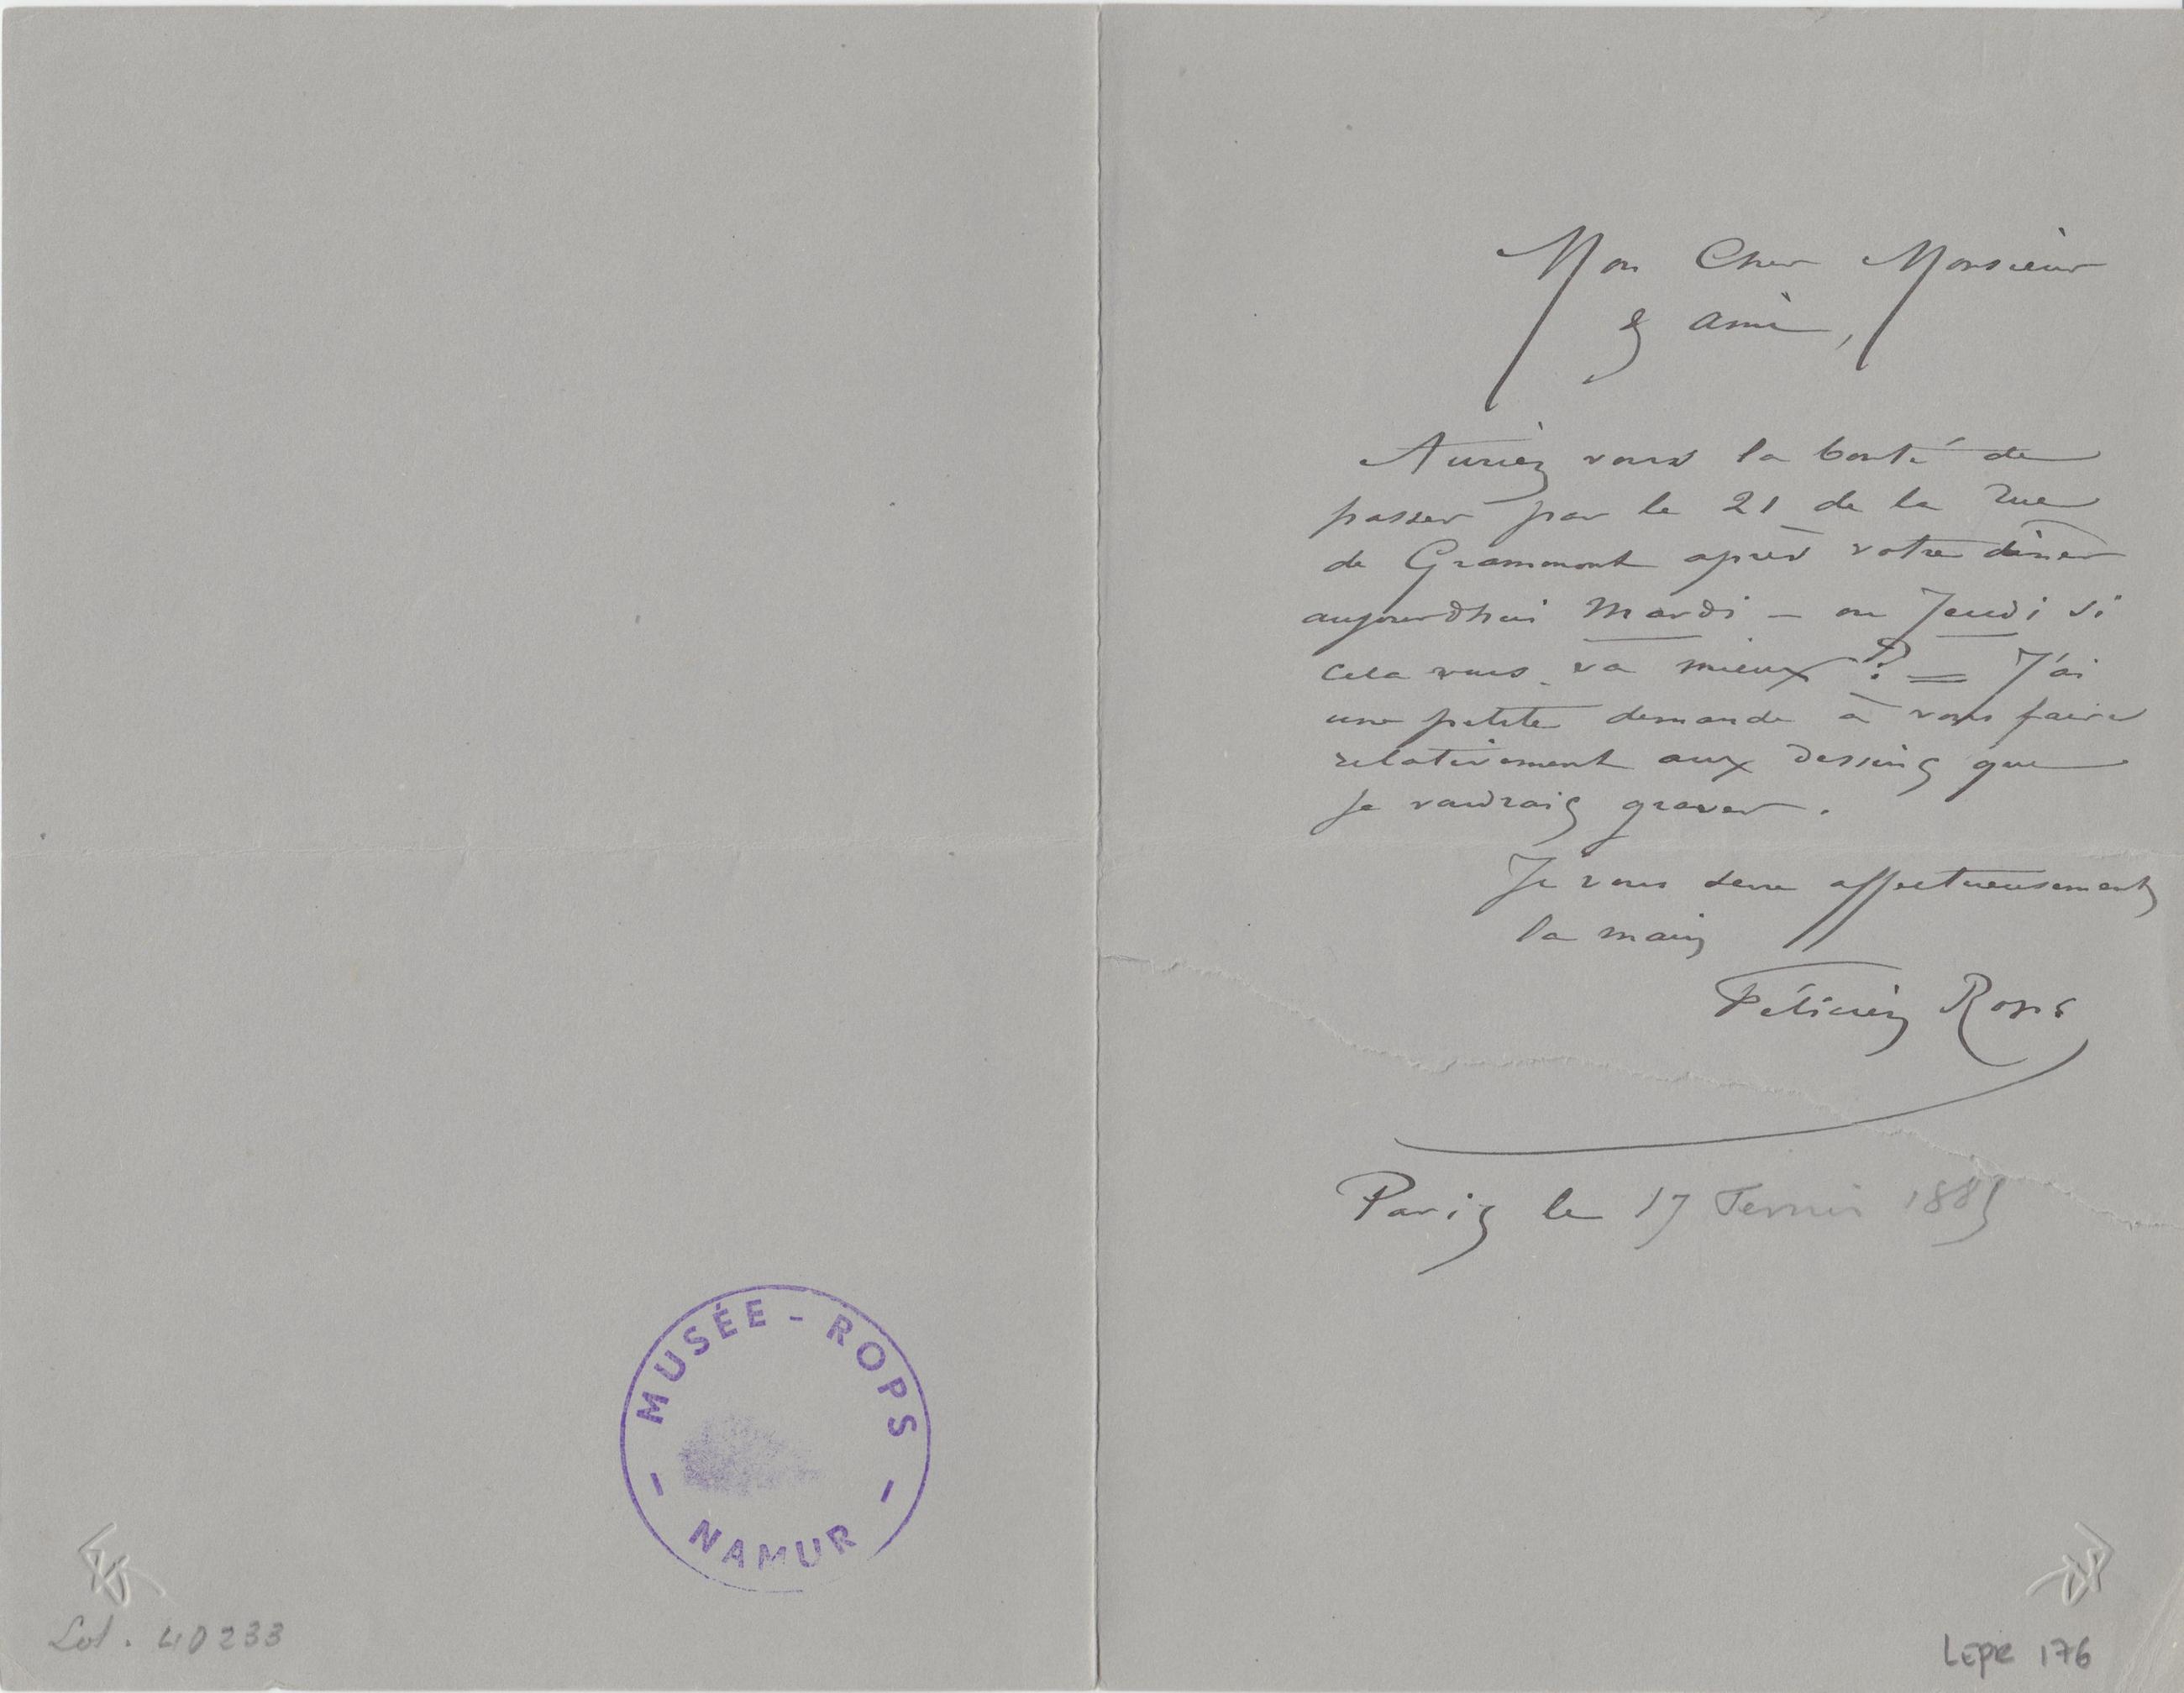 MUSÉE - ROPS
- NAMUR -
Lot. 40233
Mon Cher Monsieur
& ami,
Auriez vous la bonté de
passer par le 21 de la rue
de Grammont après votre dîner
aujourdhui Mardi – ou Jeudi si
cela vous va mieux ? = J'ai
une petite demande à vous faire
relativement aux dessins que
je voudrais graver.
Je vous serre affectueusement
la main
Félicien Rops
Paris le 17 1885
LEpr 176